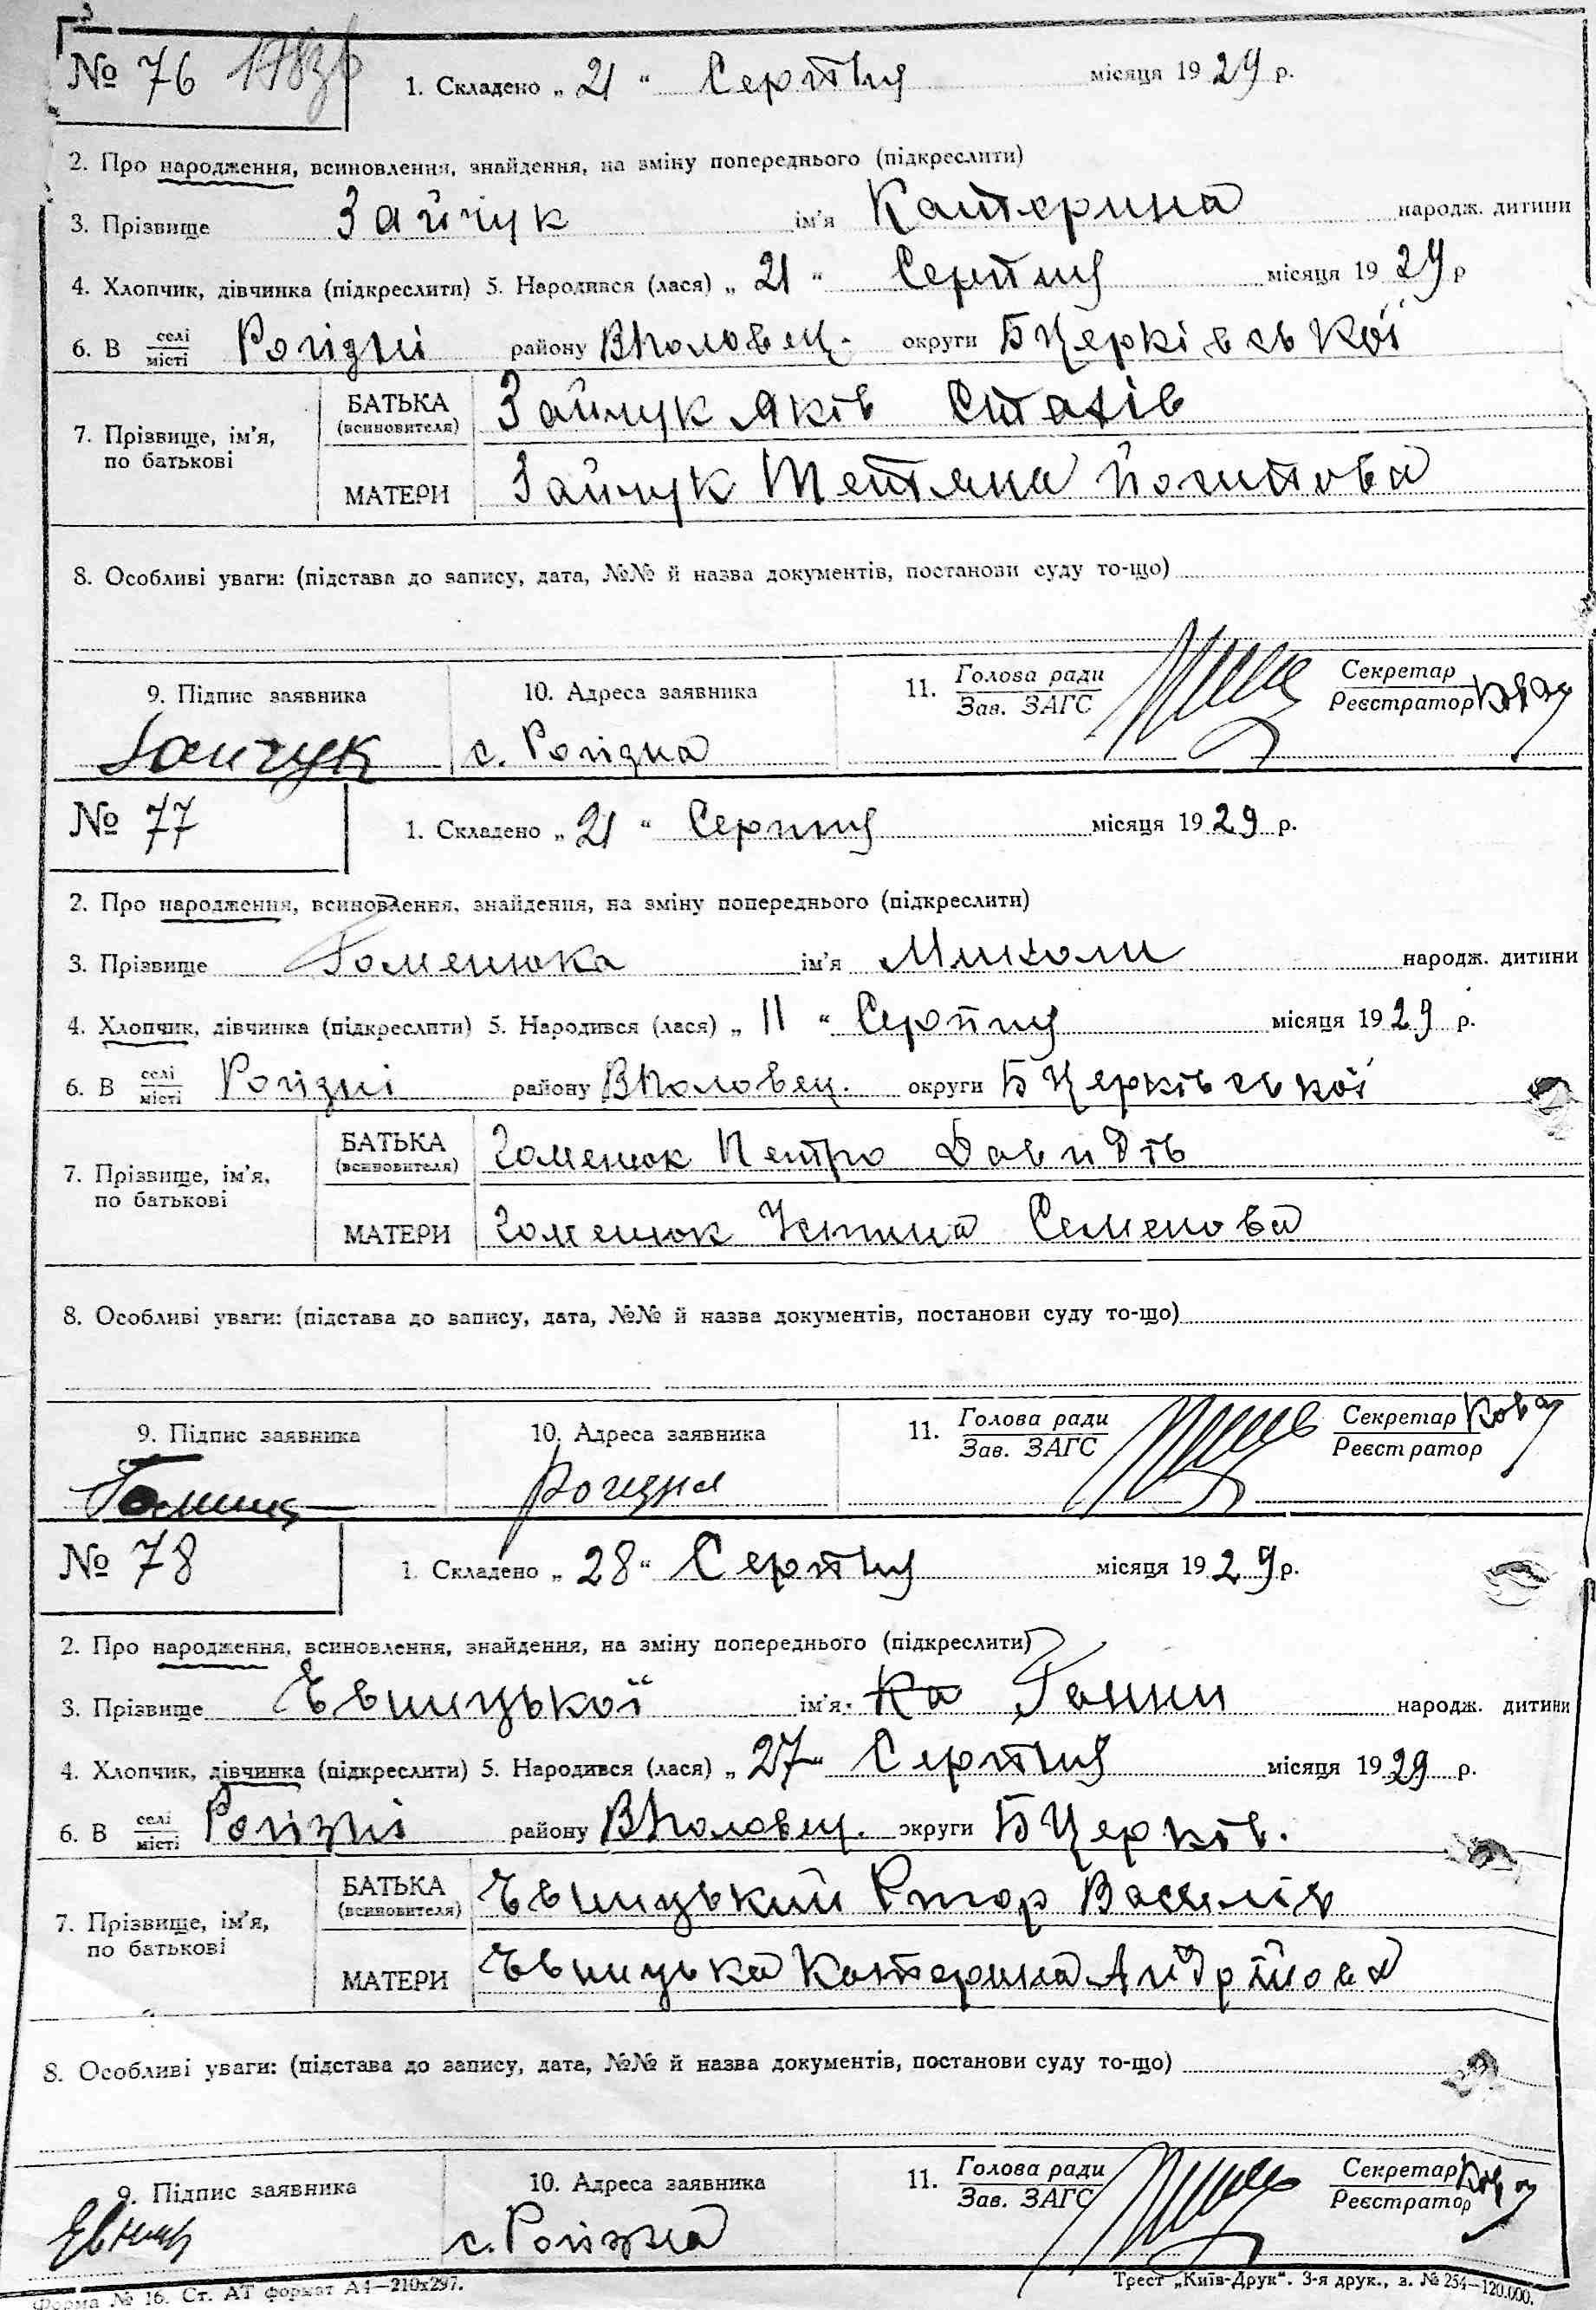 № 76
1. Складено „ 21 “ Серпня місяця 1929 р.
2. Про народження, всиновлення, знайдення, на зміну попереднього (підкреслити)
3. Прізвище Зайчук ім'я Катерина народж. дитини
4. Хлопчик, дівчинка (підкреслити) 5. Народився (лася) „ 21 “ Серпня місяця 1929 р
6. В селі/місті Рогізні району Вполовец. округи БЦерківської
7. Прізвище, ім'я, по батькові
БАТЬКА (всиновителя) Зайчук Яків Стахів
МАТЕРИ Зайчук Тетяна Йосипова
8. Особливі уваги: (підстава до запису, дата, №№ й назва документів, постанови суду то-що)
9. Підпис заявника 10. Адреса заявника 11. Голова ради/Зав. ЗАГС Секретар/Реєстратор
Зайчук с. Рогізна
№ 77
1. Складено „ 21 “ Серпня місяця 1929 р.
2. Про народження, всиновлення, знайдення, на зміну попереднього (підкреслити)
3. Прізвище Гоменюка ім'я Миколи народж. дитини
4. Хлопчик, дівчинка (підкреслити) 5. Народився (лася) „ 11 “ Серпня місяця 1929 р.
6. В селі/місті Рогізні району Вполовец. округи БЦерківської
7. Прізвище, ім'я, по батькові
БАТЬКА (всиновителя) Гоменюк Петро Давидів
МАТЕРИ Гоменюк Устина Семенова
8. Особливі уваги: (підстава до запису, дата, №№ й назва документів, постанови суду то-що)
9. Підпис заявника 10. Адреса заявника 11. Голова ради/Зав. ЗАГС Секретар/Реєстратор
Рогизна
№ 78
1. Складено „ 28 “ Серпня місяця 1929 р.
2. Про народження, всиновлення, знайдення, на зміну попереднього (підкреслити)
3. Прізвище Євницької ім'я Ка Ганни народж. дитини
4. Хлопчик, дівчинка (підкреслити) 5. Народився (лася) „ 27 “ Серпня місяця 1929 р.
6. В селі/місті Рогізні району Вполовец. округи БЦерків.
7. Прізвище, ім'я, по батькові
БАТЬКА (всиновителя) Євницький Василів
МАТЕРИ Євницька Катерина Андрійова
8. Особливі уваги: (підстава до запису, дата, №№ й назва документів, постанови суду то-що)
9. Підпис заявника 10. Адреса заявника 11. Голова ради/Зав. ЗАГС Секретар/Реєстратор
Євниц с. Рогізна
Форма № 16. Ст. АТ формат А4—210х297. Трест „Київ-Друк“. 3-я друк., з. № 254—120.000.